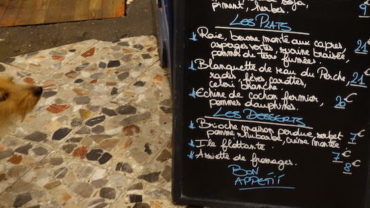 piment, herbes. 9
LES PLATS
* Raie, beurre monté aux capres, 21€
asperges vertes, queue braisée,
pommes de terre fumées.
* Blanquette de veau du Perche, 24€
radis, fèves, carottes,
celeri branche.
* Echine de cochon fermier, 20€
pommes dauphines.
LES DESSERTS
* Brioche maison perdue, sorbet 7€
pomme rhubarbe, cuisse montée
* Ile flottante. 7€
* Assiette de fromages. 8€
BON
APPETIT